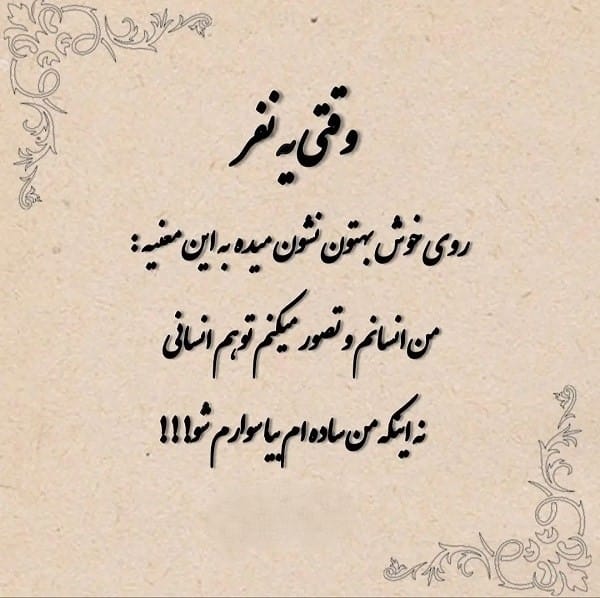 وقتی یه نفر
روی خوش بهتون نشون میده به این معنیه :
من انسانم و تصور میکنم تو هم انسانی
نه اینکه من ساده ام بیا سوارم شو!!!